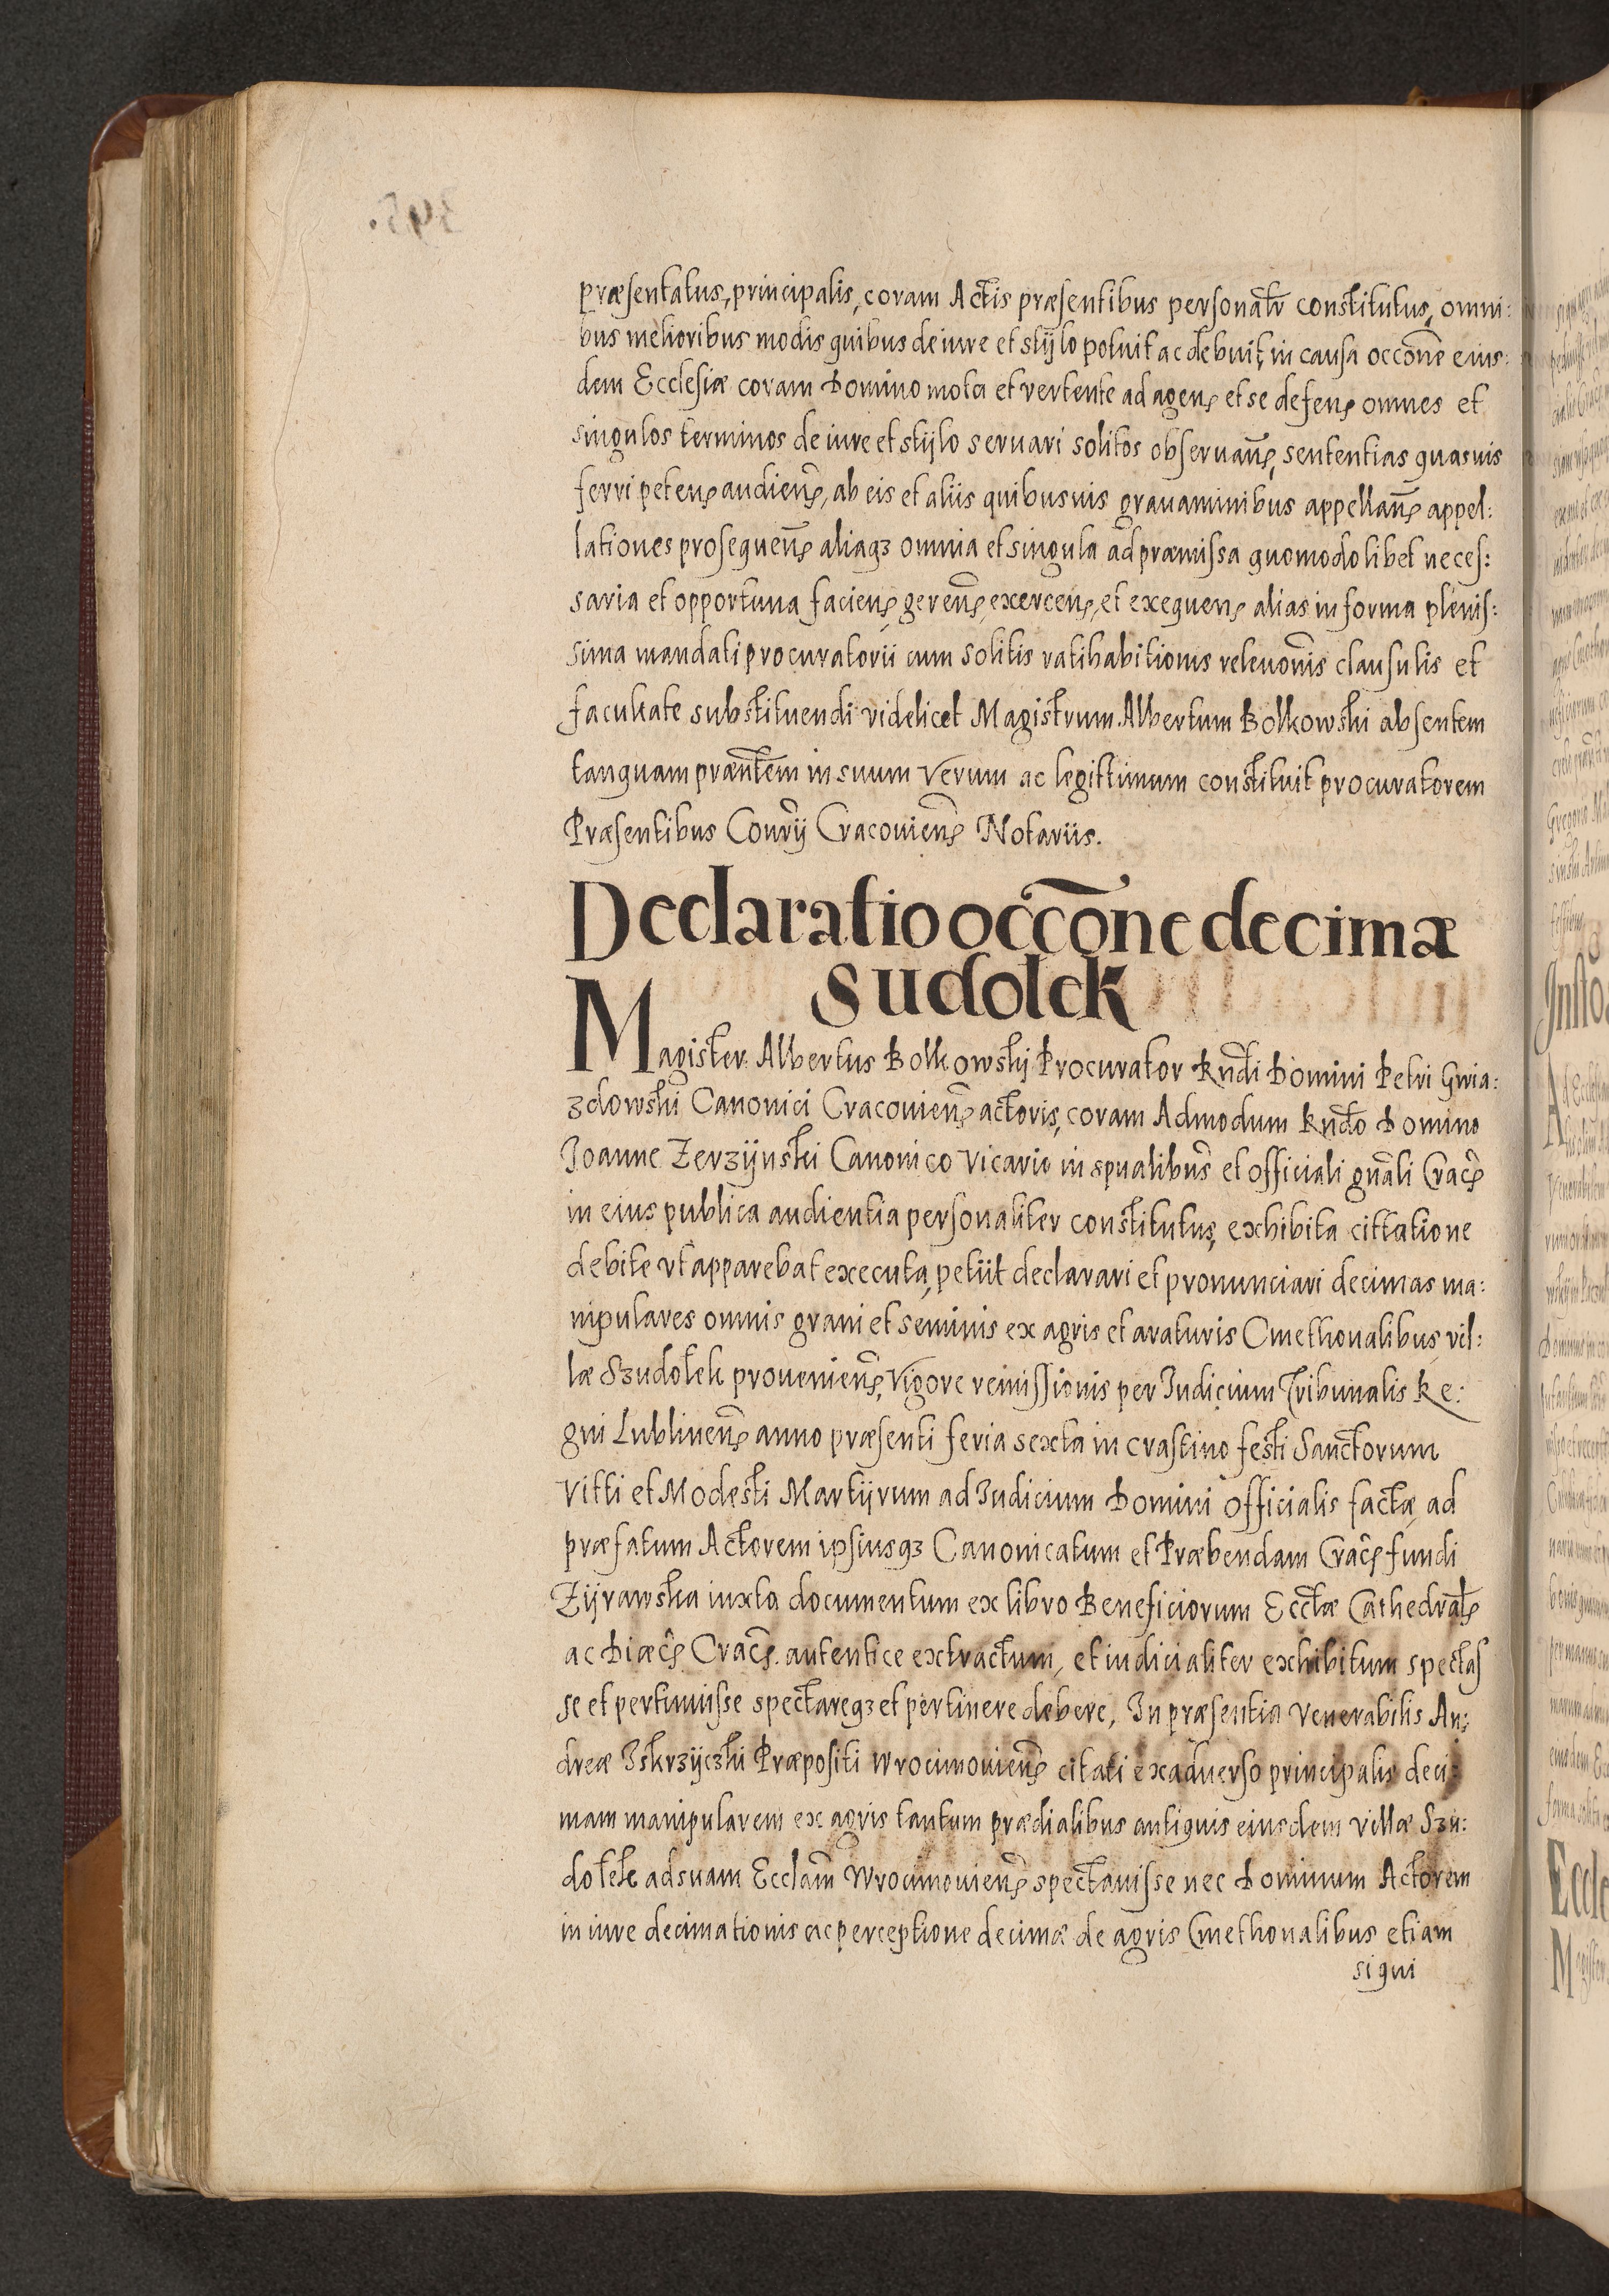 præsentatus, principalis, coram Actis præsentibus personatr constitutus, omni:
bus melioribus modis quibus de iure et stijlo potuit ac debuit, in causa occone eius:
dem Ecclesiæ coram Domino mota et vertente ad agen et se defen omnes et
singulos terminos de iure et stijlo seruari solitos obseruan, sententias quasuis
ferri peten audien, ab eis et aliis quibusuis grauaminibus appellan appel:
lationes prosequen aliaqz omnia et singula ad præmissa quomodolibet neces:
saria et opportuna facien, geren, exercen, et exequen alias in forma plenis:
sima mandati procuratorii cum solitis ratihabitionis releuonis clausulis et
facultate substituendi videlicet Magistrum Albertum Bolkowski absentem
tanquam præntem in suum verum ac legittimum constituit procuratorem
Præsentibus Conrij Cracouien Notariis.
Declaratio occone decimæ
Sudolek
Magister Albertus Bolkowskij Procurator Rndi Domini Petri Gwia:
zdowski Canonici Cracouien actoris, coram Admodum Rndo Domino
Joanne Zerzijnski Canonico Vicario in spualibus et officiali gnali Crac
in eius publica audientia personaliter constitutus, exhibita cittatione
debite vt apparebat executa, petiit declarari et pronunciari decimas ma:
nipulares omnis grani et seminis ex agris et araturis Cmethonalibus vil:
læ Szudolek prouenien, Vigore remissionis per Judicium Tribunalis Re:
gni Lublinen anno præsenti feria sexta in crastino festi Sanctorum
Vitti et Modesti Martijrum ad Judicium Domini Officialis factæ, ad
præfatum Actorem ipsiusqz Canonicatum et Præbendam Crac fundi
Zijrawska iuxta documentum ex libro Beneficiorum Ecctæ Cathedral
ac Diæc Crac. autentice extractum, et iudicialiter exhibitum spectas
se et pertinuisse spectareqz et pertinere debere, In præsentia Venerabilis An:
dreæ Jskrzijczki Præpositi Wrocimouien citati ex aduerso principalis deci:
mam manipularem ex agris tantum prædialibus antiquis eiusdem villæ Szu:
dolek ad suam Ecclam Wrocimouien spectauisse nec Dominum Actorem
in iure decimationis ac perceptione decimæ de agris Cmethonalibus etiam
si qui